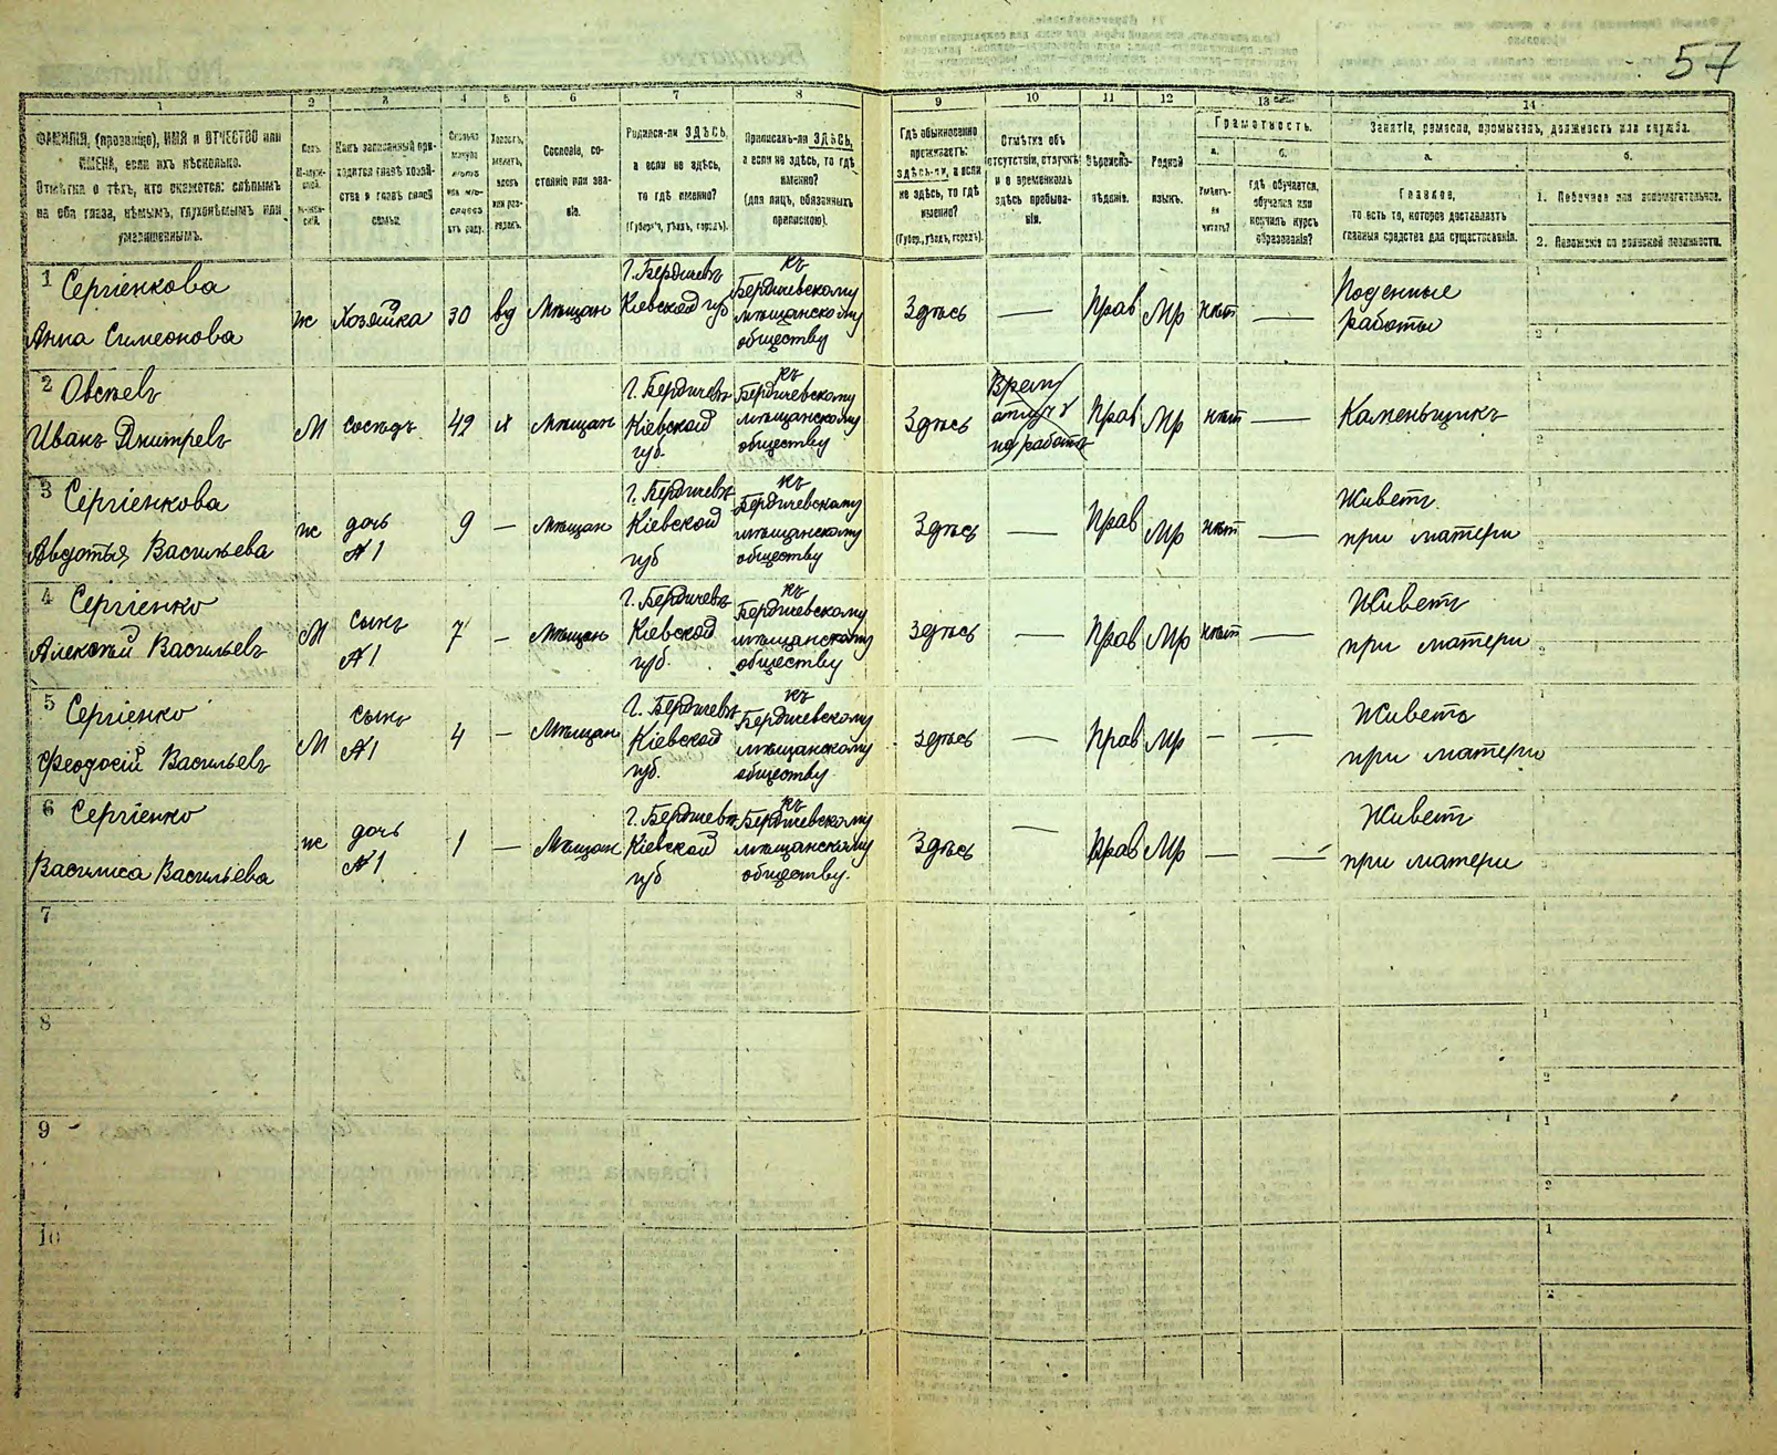 57
1 2 3 4 5 6 7 8 9 10 11 12 13 14
ФАМИЛІЯ, (прозвище), ИМЯ и ОТЧЕСТВО или
ИМЕНА, если ихъ нѣсколько.
Отмѣтка о тѣхъ, кто окажется: слѣпымъ
на оба глаза, нѣмымъ, глухонѣмымъ или
умалишеннымъ.
Какъ записанный при-
ходится главѣ хозяй-
ства и главѣ своей
семьи.
Сословіе, со-
стояніе или зва-
ніе.
Родился-ли ЗДѢСЬ,
а если не здѣсь,
то гдѣ именно?
(Губернія, уѣздъ, городъ).
Приписанъ-ли ЗДѢСЬ,
а если не здѣсь, то гдѣ
именно?
(для лицъ, обязанныхъ
припискою).
Гдѣ обыкновенно
проживаетъ:
здѣсь-ли, а если
не здѣсь, то гдѣ
именно?
(Губер., уѣздъ, городъ).
Отмѣтка объ
отсутствіи, отлучкѣ
и о временномъ
здѣсь пребыва-
ніи.
Вѣроиспо-
вѣданіе.
Родной
языкъ.
Грамотность.
а.
Умѣетъ-
ли
читать?
б.
гдѣ обучается,
обучался или
кончилъ курсъ
образованія?
Занятіе, ремесло, промыселъ, должность или служба.
а.
Главное,
то есть то, которое доставляетъ
главныя средства для существованія.
б.
1. Побочное или вспомогательное.
2. Положеніе по воинской повинности.
1 Сергіенкова
Анна Симеонова
ж
Хозяйка
30
вд
Мѣщан
Г. Бердичевъ
Кіевской губ
къ
Бердичевскому
мѣщанскому
обществу
Здѣсь
—
Прав
Мр
нѣт
—
Поденные
работы
2 Овсѣевъ
Иванъ Дмитревъ
М
сосѣдъ
42
х
Мѣщан
Г. Бердичевъ
Кіевской
губ.
къ
Бердичевскому
мѣщанскому
обществу
Здѣсь
Прав
Мр
нѣт
—
Каменьщикъ
3 Сергіенкова
Авдотья Васильева
ж
дочь
№ 1
9
—
Мѣщан
Г. Бердичевъ
Кіевской
губ
къ
Бердичевскому
мѣщанскому
обществу
Здѣсь
—
Прав
Мр
нѣт
—
Живетъ
при матери
4 Сергіенко
Алексѣй Васильевъ
М
сынъ
№ 1
7
—
Мѣщан
Г. Бердичевъ
Кіевской
губ.
къ
Бердичевскому
мѣщанскому
обществу
Здѣсь
—
Прав
Мр
нѣт
—
Живетъ
при матери
5 Сергіенко
Феодосій Васильевъ
М
сынъ
№ 1
4
—
Мѣщан
Г. Бердичевъ
Кіевской
губ.
къ
Бердичевскому
мѣщанскому
обществу
здѣсь
—
Прав
Мр
—
—
Живетъ
при матери
6 Сергіенко
Василиса Васильева
ж
дочь
№ 1
1
—
Мѣщан
Г. Бердичевъ
Кіевской
губ
къ
Бердичевскому
мѣщанскому
обществу.
Здѣсь
—
Прав
Мр
—
—
Живетъ
при матери
7
8
9
10